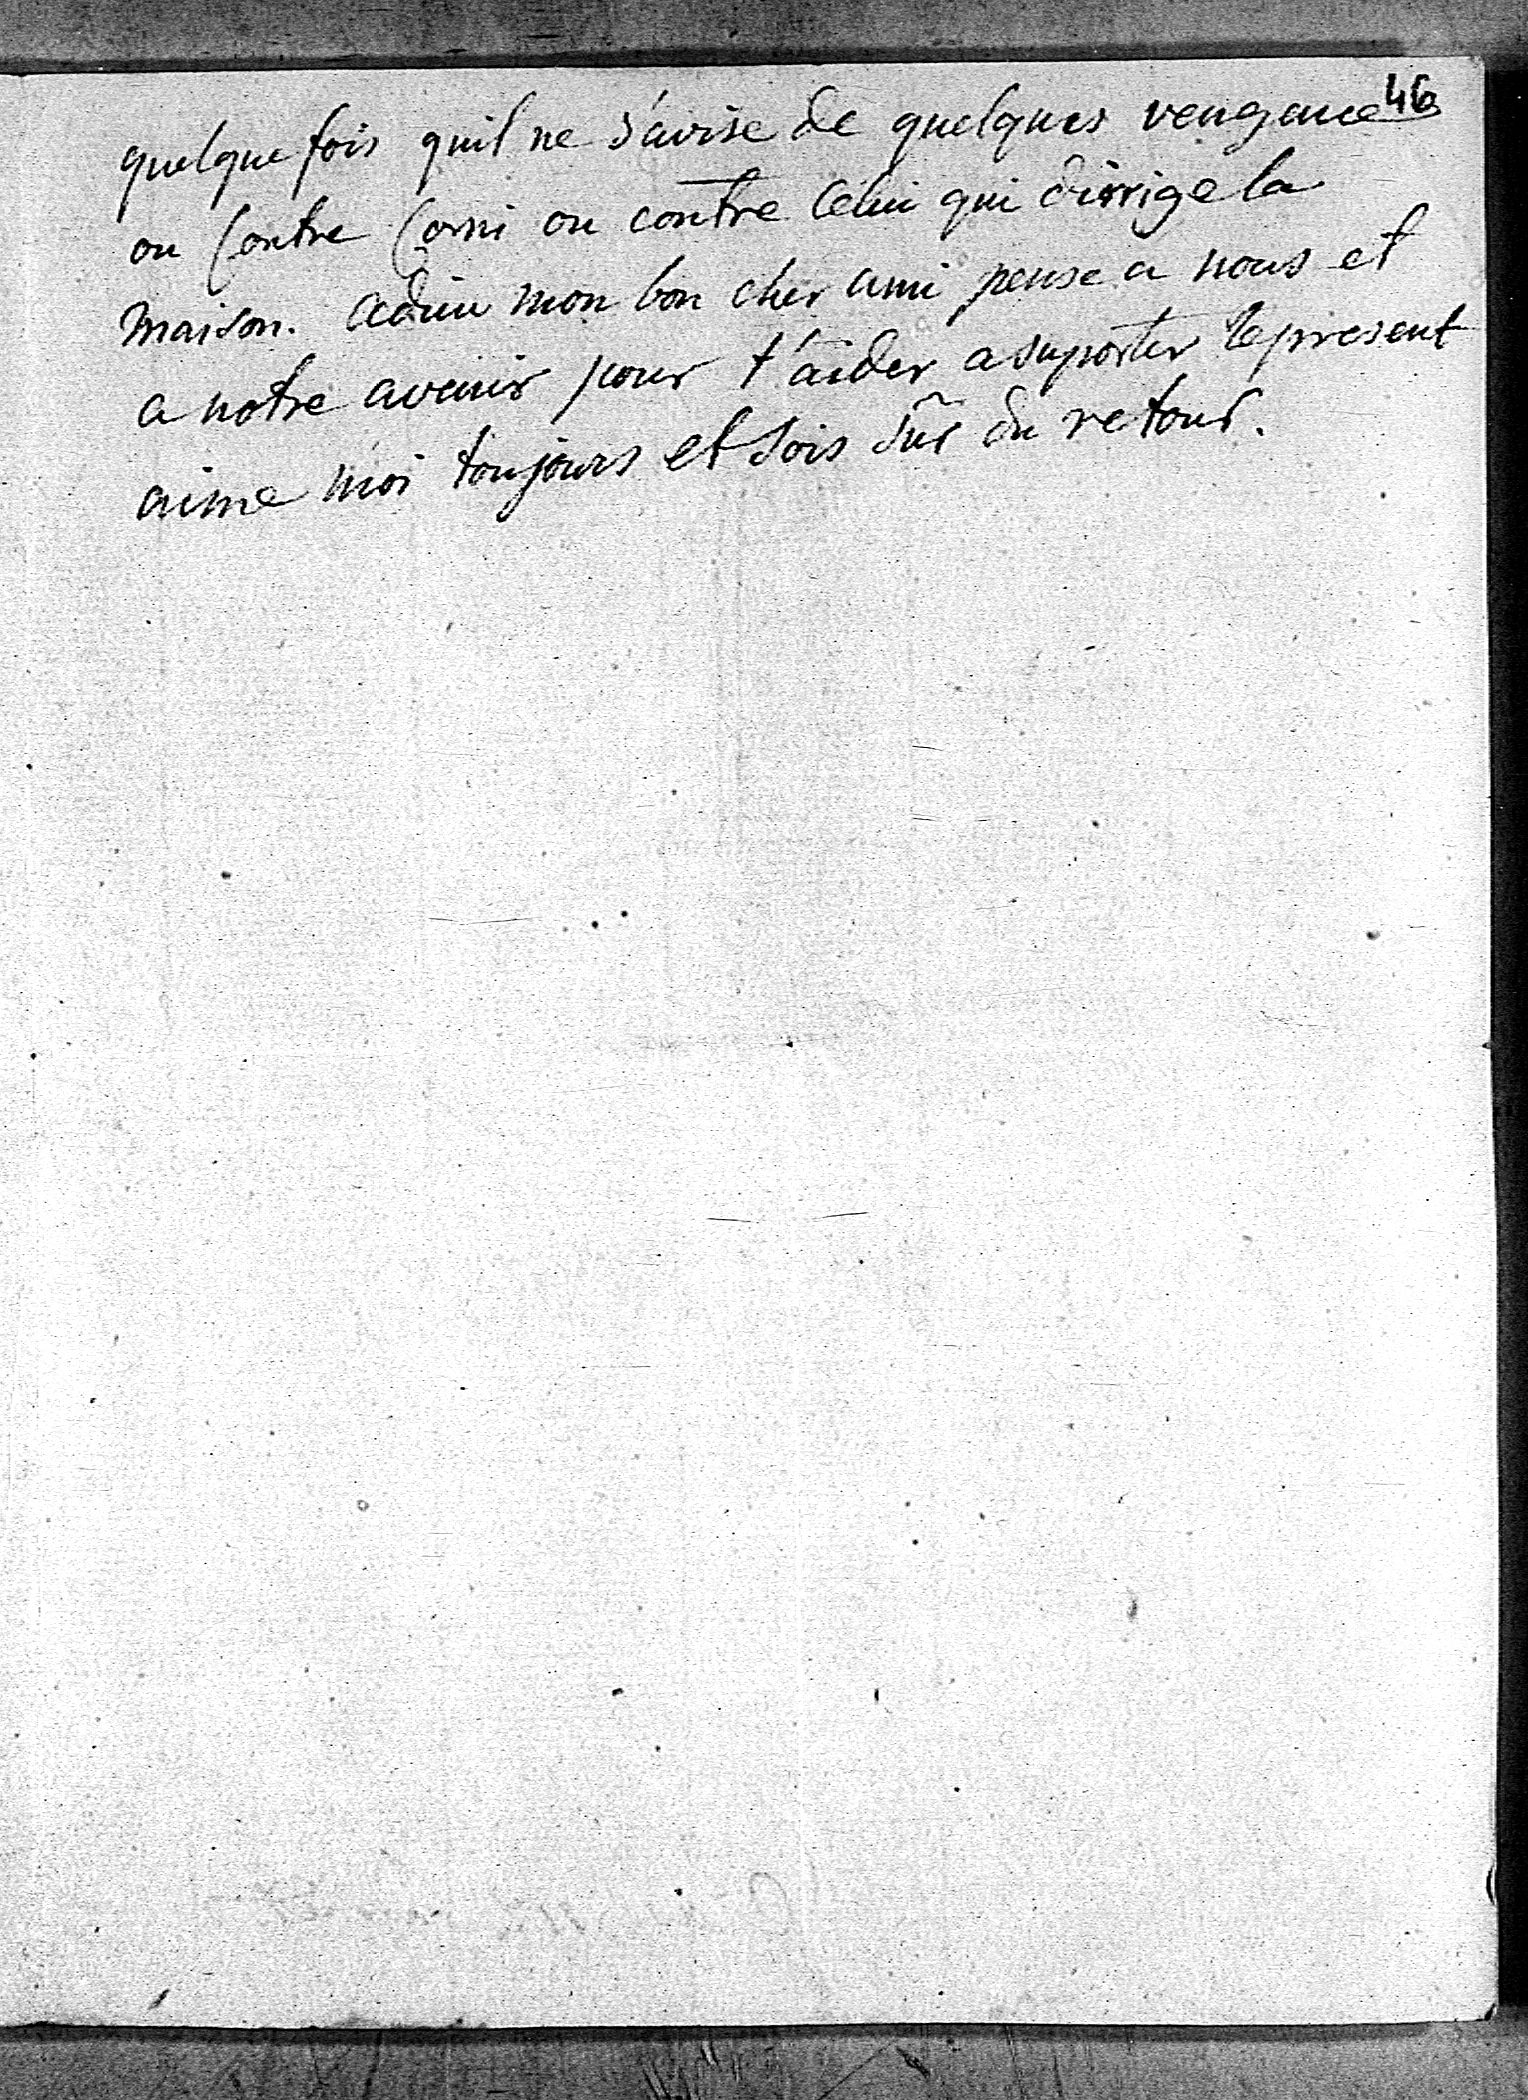 46
quelque fois quil ne s'avise de quelques vengance
ou contre Corni ou contre celui qui dirrige la
maison. adieu mon bon cher ami pense a nous et
a notre avenir pour t'aider a suporter le present
aime moi toujours et sois sûr du retour.